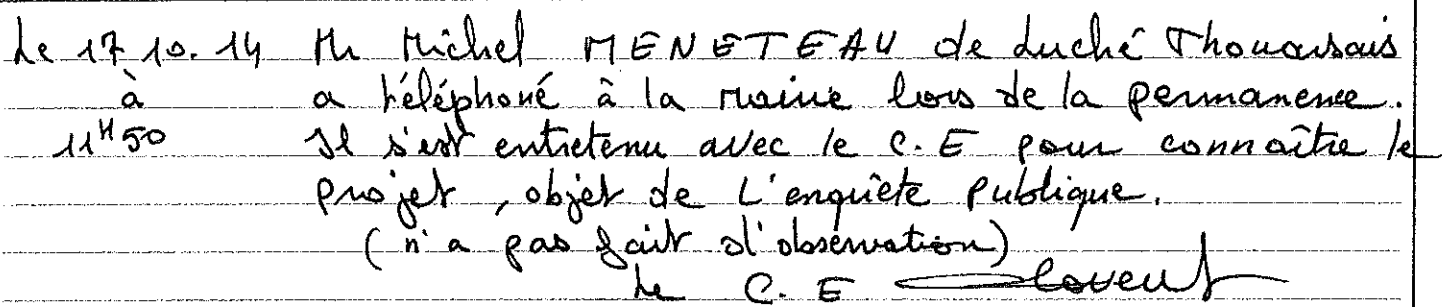 Le 17.10.14 Mr Michel MENETEAU de Luché Thouarsais
à a téléphoné à la mairie lors de la permanence.
11H50 Il s'est entretenu avec le C.E pour connaître le
projet, objet de L'enquête publique.
(n'a pas fait d'observation)
Le C.E